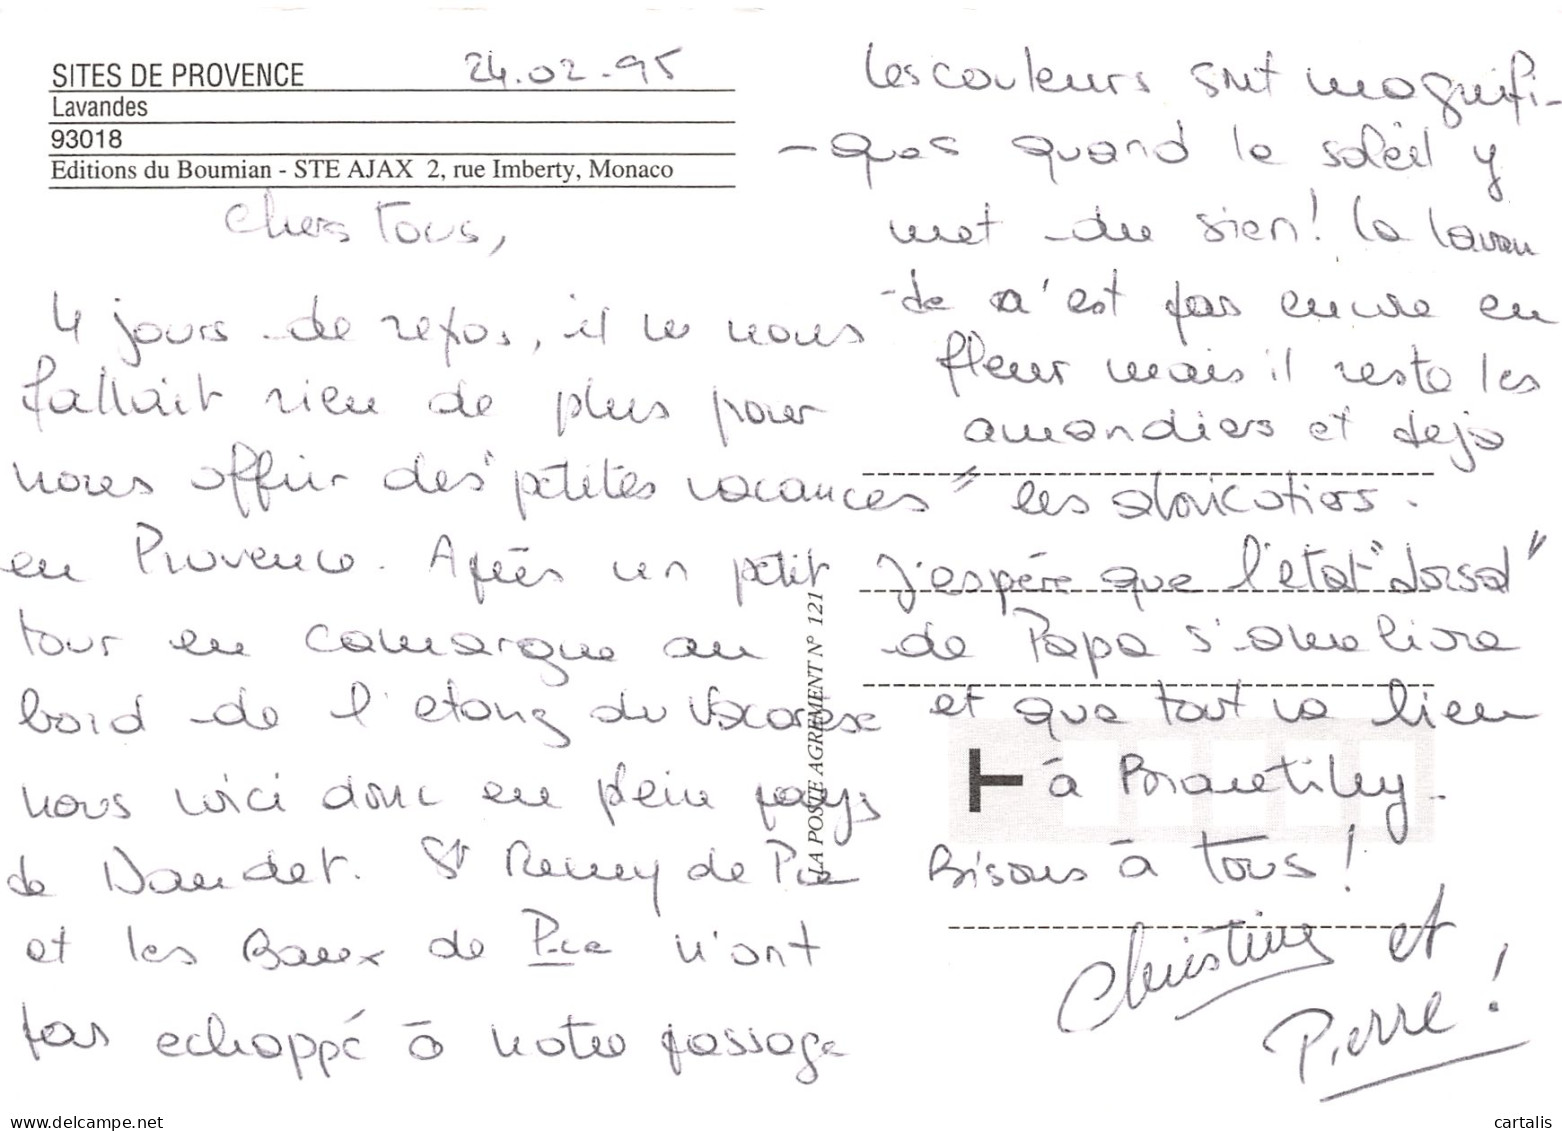 SITES DE PROVENCE
Lavandes
93018
Editions du Boumian - STE AJAX 2, rue Imberty, Monaco
24.02.95
Chers tous,
4 jours de repos, il ne nous
fallait rien de plus pour
nous offrir des "petites vacances"
en Provence. Après un petit
tour en Camargue au
bord de l'etang du Vacarese
nous voici donc en plein pays
de Daudet. St Remy de Pce
et les Baux de Pce n'ont
pas echappé à notre passage
Les couleurs sont magnifi-
-ques quand le soleil y
met du sien! la lavan
-de n'est pas encore en
fleur mais il reste les
amandiers et deja
les abricotiers.
J'espère que l'état "dorsal"
de Papa s'ameliore
et que tout va bien
à
Bisous à tous!
Christine et
Pierre!
LA POSTE AGREMENT N° 121
T
www.delcampe.net
cartalis